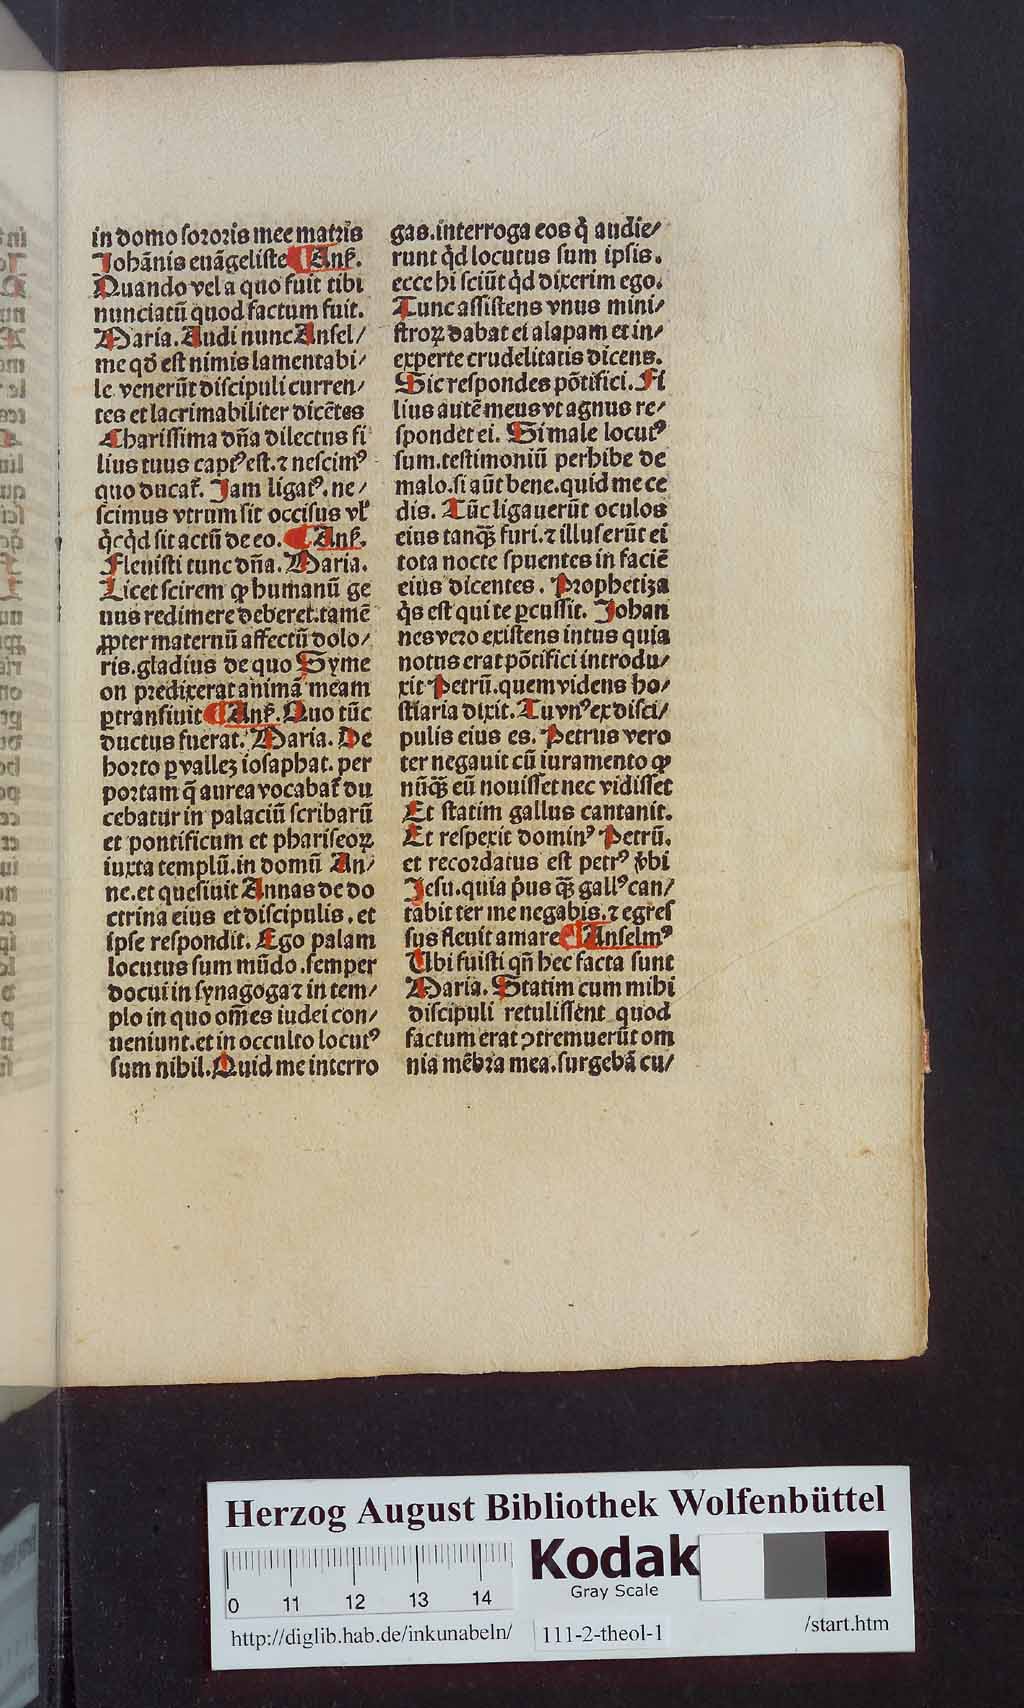 in domo sororis mee matris
Johānis euāgeliste ¶ Anẜ.
Quando vel a quo fuit tibi
nunciatū quod factum fuit.
Maria. Audi nunc Ansel/
me qđ est nimis lamentabi/
le venerūt discipuli curren/
tes et lacrimabiliter dicētes
Charissima dn̄a dilectus fi
lius tuus captꝰ est. ⁊ nescimꝰ
quo ducat̄. Jam ligatꝰ. ne/
scimus vtrum sit occisus vl̓
q̇cq̇d sit actū de eo. ¶ Anẜ.
Fleuisti tunc dn̄a. Maria.
Licet scirem ꝙ humanū ge
nus redimere deberet. tamē
ꝓpter maternū affectū dolo/
ris. gladius de quo Syme
on predixerat animā meam
ꝑtransiuit ¶ Anẜ. Quo tūc
ductus fuerat. Maria. De
horto ꝑ vallez iosaphat. per
portam q̄ aurea vocabat̄ du
cebatur in palaciū scribarū
et pontificum et phariseoꝝ
iuxta templū. in domū An/
ne. et quesiuit Annas de do
ctrina eius et discipulis. et
ipse respondit. Ego palam
locutus sum mūdo. semper
docui in synagoga ⁊ in tem/
plo in quo om̄es iudei con/
ueniunt. et in occulto locutꝰ
sum nihil. Quid me interro
gas. interroga eos q̇ audie/
runt q̇d locutus sum ipsis.
ecce hi sciūt q̇d dixerim ego.
Tunc assistens vnus mini/
stroꝝ dabat ei alapam et in/
experte crudelitatis dicens.
Sic respondes pōtifici. Fi
lius autē meus vt agnus re/
spondet ei. Si male locutꝰ
sum. testimoniū perhibe de
malo. si aūt bene. quid me ce
dis. Tūc ligauerūt oculos
eius tanqꝫ furi. ⁊ illuserūt ei
tota nocte spuentes in faciē
eius dicentes. Prophetiza
q̇s est qui te ꝑcussit. Johan
nes vero existens intus quia
notus erat pōtifici introdu/
xit Petrū. quem videns ho/
stiaria dixit. Tu vnꝰ ex disci/
pulis eius es. Petrus vero
ter negauit cū iuramento ꝙ
nūqꝫ eū nouisset nec vidisset
Et statim gallus cantanit.
Et respexit dominꝰ Petrū.
et recordatus est petrꝰ v̓bi
Jesu. quia p̓us qꝫ gallꝰ can/
tabit ter me negabis. ⁊ egres
sus fleuit amare ¶ Anselmꝰ
Ubi fuisti qn̄ hec facta sunt
Maria. Statim cum mihi
discipuli retulissent quod
factum erat ↄtremuerūt om
nia mēbra mea. surgebā cu/
Herzog August Bibliothek Wolfenbüttel
Kodak
Gray Scale
0 11 12 13 14
http://diglib.hab.de/inkunabeln/ 111-2-theol-1 /start.htm